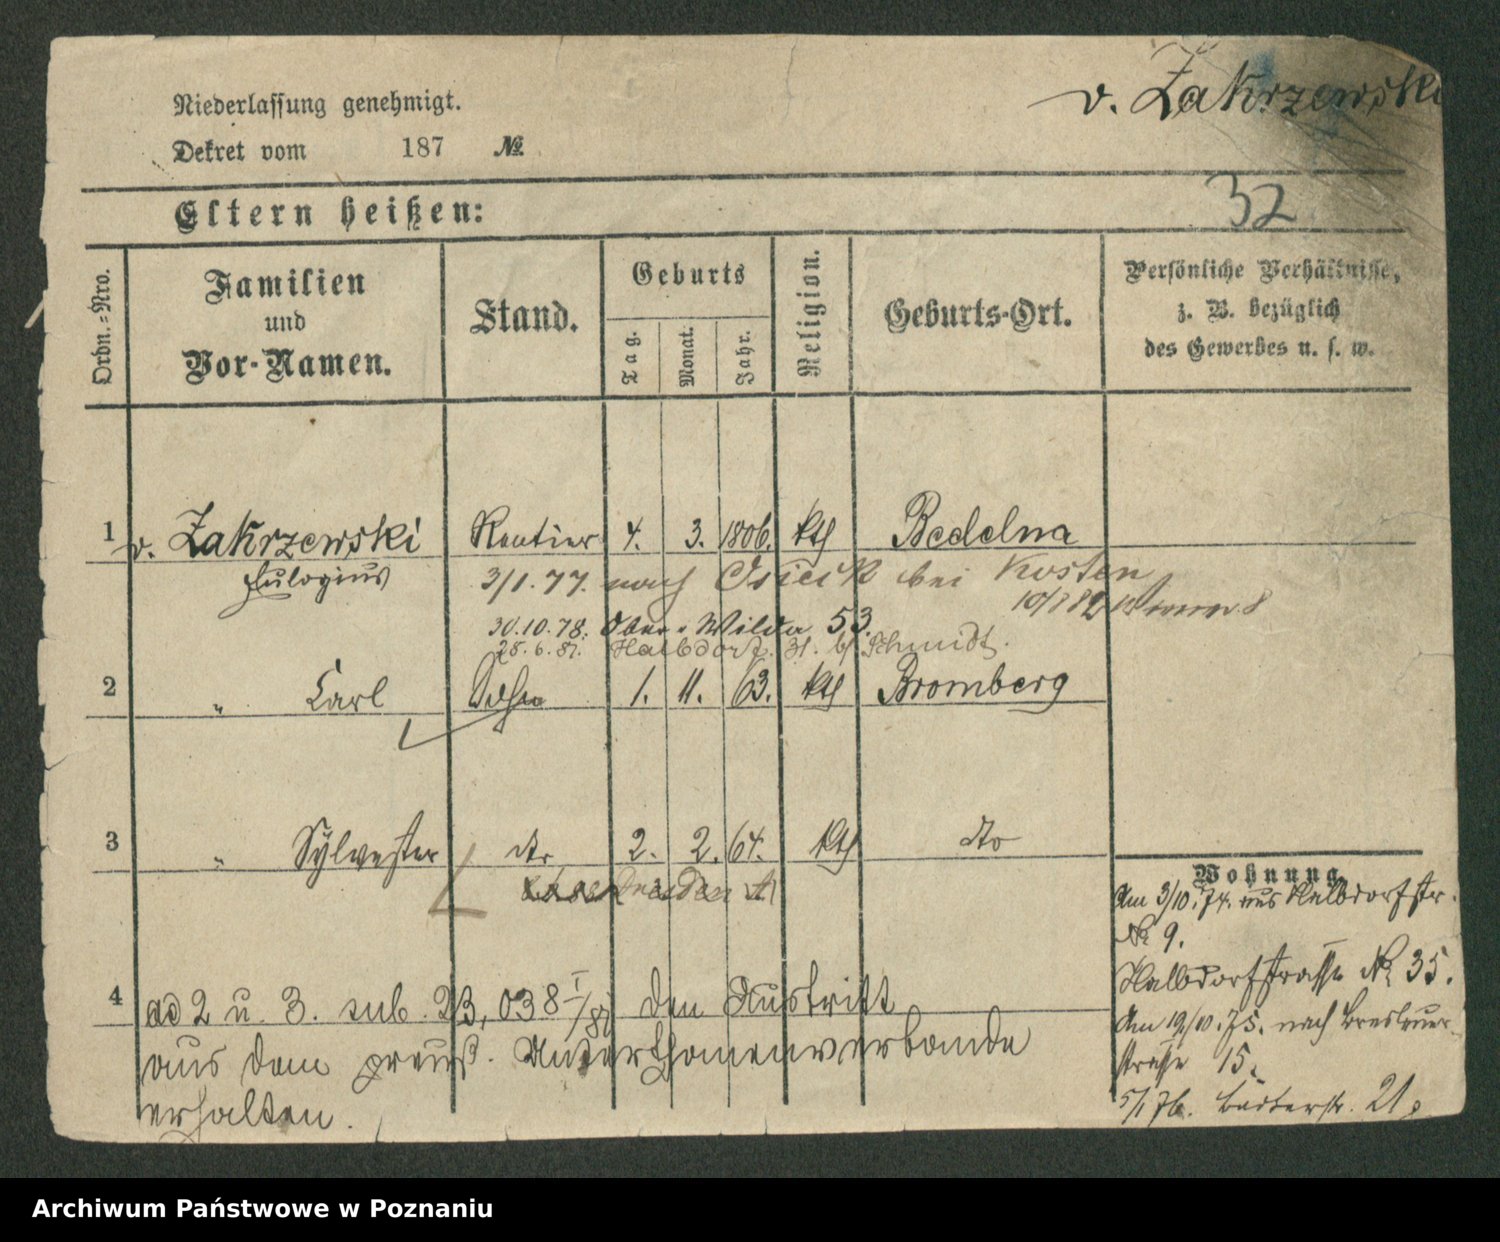 v. Zakrzewski
Niederlassung genehmigt.
Dekret vom 187 №
32
Eltern heißen:
Ordn.=Nro. Familien und Vor-Namen. Stand. Geburts Tag. Monat. Jahr. Religion. Geburts-Ort. Persönliche Verhältnisse, z. B. bezüglich des Gewerbes u. s. w.
1 v. Zakrzewski Rentier 4. 3. 1806. kth Bedelna
Eulogius 3/1. 77. nach Osieck bei Kosten
30.10.78. Ober-Wilda 53.
28.6.81. Halbdorf. 31. b/ Schmidt.
2 " Carl Sohn 1. 11. 63. kth Bromberg
3 " Sylvester dto 2. 2. 64. kth dto
Dresden
4 ad 2 u. 3. sub. 23,038 I/81 den Austritt
aus dem preuß. Unterthanenverbande
erhalten.
Wohnung.
Am 3/10. 74. aus Halbdorfstr.
№ 9.
Halbdorfstrasse № 35.
Am 19/10. 75. nach Breslauer-
straße 15.
5/1 76. Bäckerstr. 21.
Archiwum Państwowe w Poznaniu